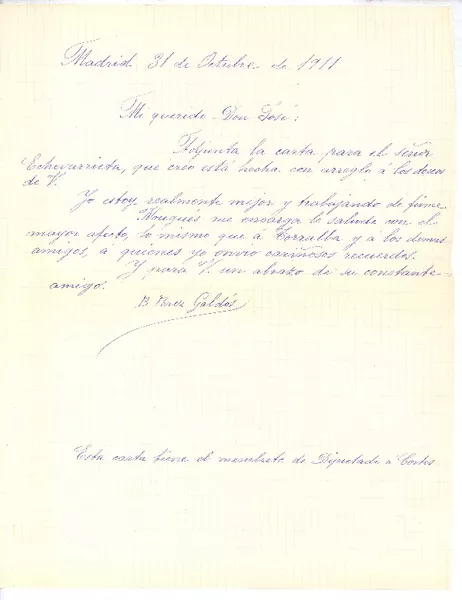 Madrid 31 de Octubre de 1911
Mi querido Don José:
Adjunta la carta para el señor
Echevarrieta, que creo está hecha con arreglo á los deseos
de V.
Yo estoy realmente mejor y trabajando de firme.
Nougués me encarga le salude con el
mayor afecto, lo mismo que á Torralba y á los demas
amigos, á quienes yo envio cariñosos recuerdos.
Y para V. un abrazo de su constante
amigo.
B Perez Galdós
Esta carta tiene el membrete de Diputado á Cortes